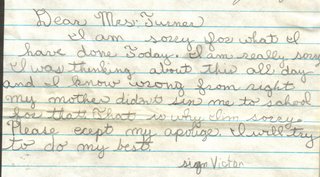 Dear Mrs. Turner
I am sorey for what I
have done Today. I am really sorey
I was thinking about this all day
and I know wrong from right
my mother didn't sin me to school
for that. That is why I'm sorey.
Please ecept my apolize. I will try
to do my best.
sign Victor